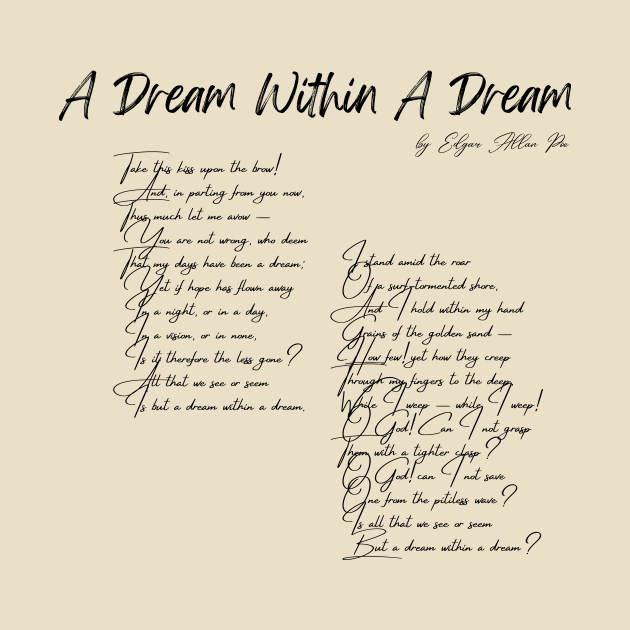 A Dream Within A Dream
by Edgar Allan Poe
Take this kiss upon the brow!
And, in parting from you now,
Thus much let me avow —
You are not wrong, who deem
That my days have been a dream;
Yet if hope has flown away
In a night, or in a day,
In a vision, or in none,
Is it therefore the less gone?
All that we see or seem
Is but a dream within a dream.
I stand amid the roar
Of a surf-tormented shore,
And I hold within my hand
Grains of the golden sand —
How few! yet how they creep
Through my fingers to the deep,
While I weep — while I weep!
O God! Can I not grasp
Them with a tighter clasp?
O God! can I not save
One from the pitiless wave?
Is all that we see or seem
But a dream within a dream?